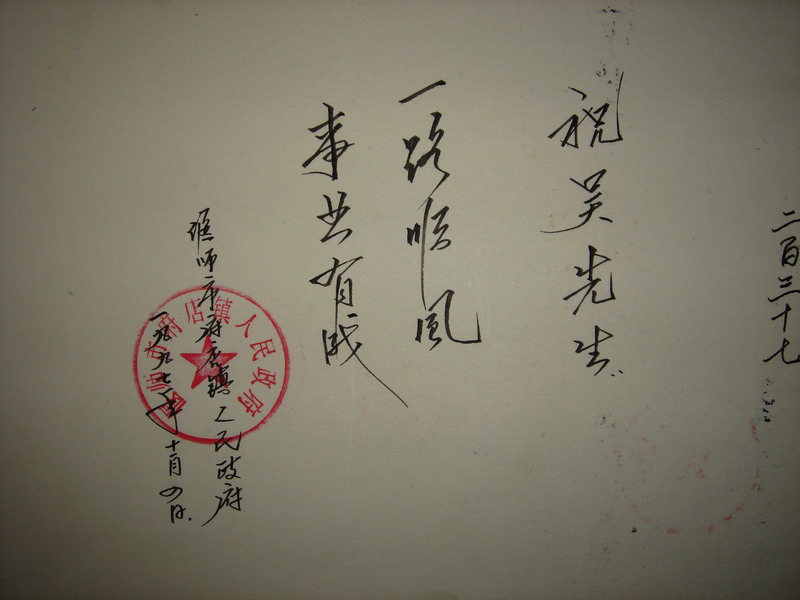 二百三十七
祝吴先生:
一路顺风
事业有成
偃师市府店镇人民政府
一九九七年十月四日.
偃师市府店镇人民政府